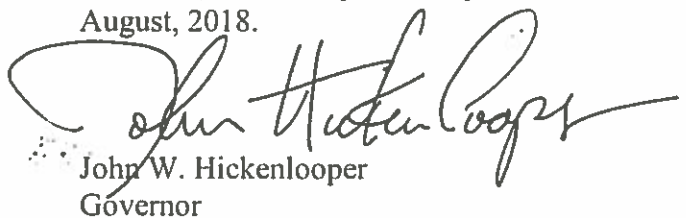 August, 2018.
John Hickenlooper
John W. Hickenlooper
Governor